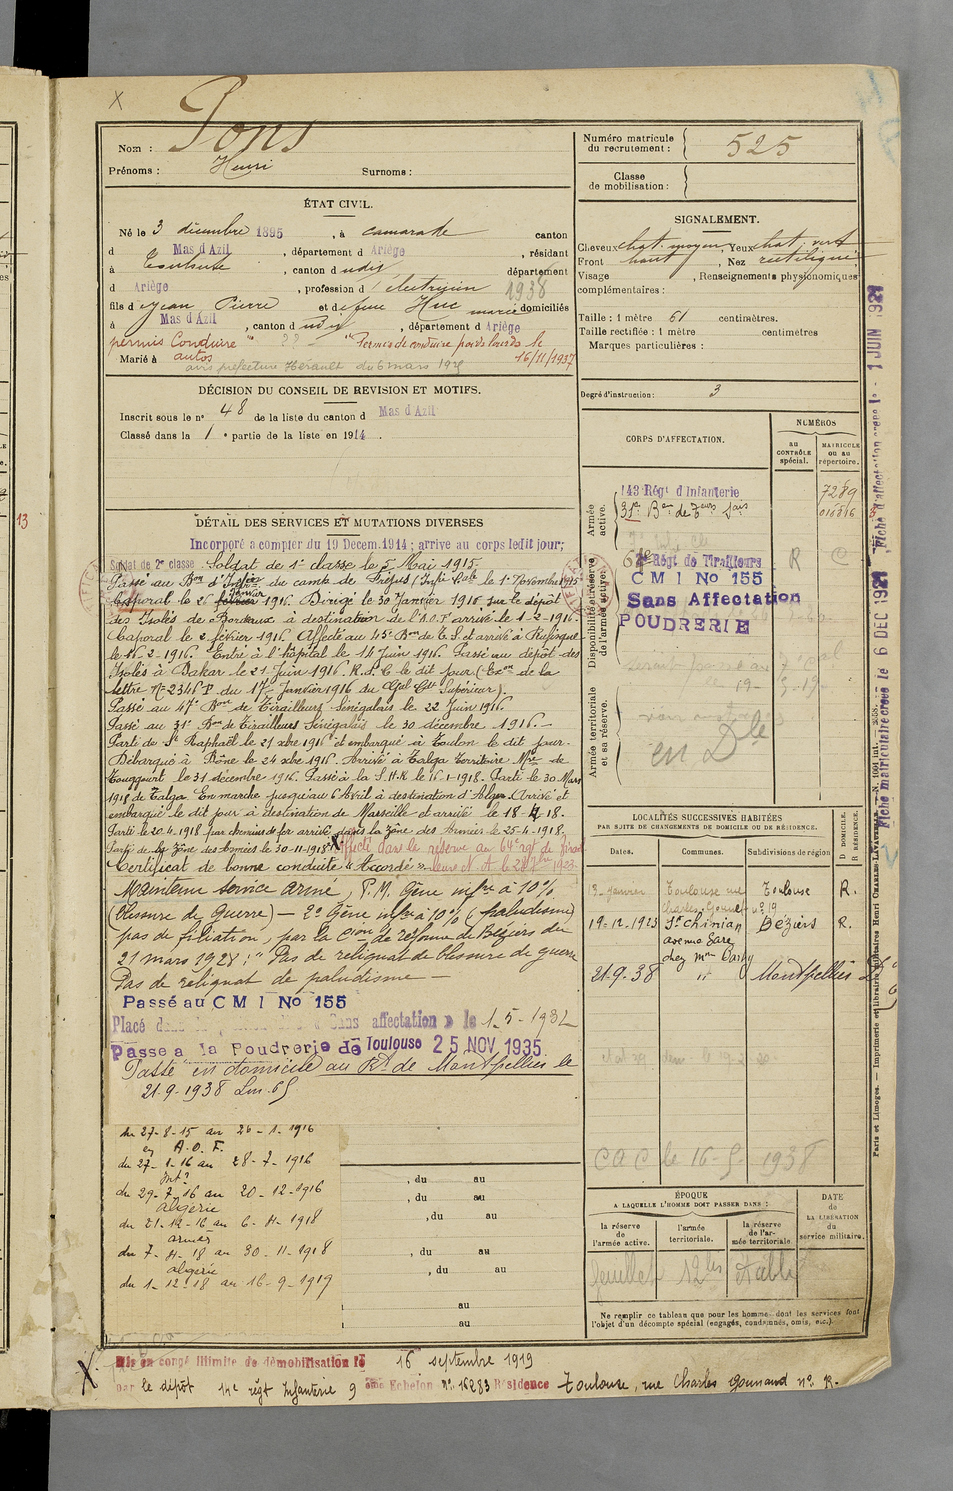 Nom : Pons
Prénoms : Henri Surnoms :
ÉTAT CIVIL.
Né le 3 décembre 1895, à Camarade canton
d Mas d'Azil, département d Ariège, résidant
à Toulouse, canton d udit, département
d Ariège, profession d' électricien 1938
fils d e Jean Pierre et d e feue Huc mariés domiciliés
à Mas d'Azil, canton d udit, département d Ariège
permis Conduire " "Permis de conduire poids lourds le
Marié à autos 16/11/1937
avis préfecture Hérault du 6 mars 19
DÉCISION DU CONSEIL DE REVISION ET MOTIFS.
Inscrit sous le n° 48 de la liste du canton d Mas d'Azil
Classé dans la 1 e partie de la liste en 1914.
DÉTAIL DES SERVICES ET MUTATIONS DIVERSES
Incorporé a compter du 19 Décem. 1914 ; arrive au corps ledit jour;
Soldat de 2e classe Soldat de 1e classe le 5 Mai 1915.
Passé au Bon d'Infrie du camp de Fréjus (Infie Cole) le 1er Novembre 1915
Caporal le 26 février Janvier 1916. Dirigé le 30 Janvier 1916 sur le dépôt
des Isolés de Bordeaux à destination de l'A.O.F. arrivé le 1-2-1916.
Caporal le 2 février 1916. Affecté au 45e Bon de T.S. et arrivé à Rufisque
le 16-2-1916. Entré à l'hôpital le 14 Juin 1916. Passé au dépôt des
Isolés à Dakar le 21 Juin 1916. R.d.C. le dit jour (Exon de la
lettre N° 2346 P du 17 Janvier 1916 du Gal Ct Supérieur).
Passé au 47e Bon de Tirailleurs Sénégalais le 22 Juin 1916
Passé au 31e Bon de Tirailleurs Sénégalais le 30 décembre 1916.
Parti de St Raphaël le 21 xbre 1916 et embarqué à Toulon le dit jour.
Débarqué à Bône le 24 xbre 1916. Arrivé à Talga Territoire Mre de
Touggourt le 31 décembre 1916. Passé à la S.H.R. le 16-1-1918. Parti le 30 Mars
1918 de Talga. En marche jusqu'au 6 Avril à destination d'Alger. Arrivé et
embarqué le dit jour à destination de Marseille et arrivé le 18-4-18.
Parti le 20.4.1918 par chemins de fer arrivé dans la Zone des Armées le 25-4-1918.
Parti de la Zone des Armées le 30-11-1918 X Affecté dans la réserve au 64e rgt de Tirail-
Certificat de bonne conduite "Accordé" leurs N. A. le 1923
Maintenu service armé, P.M. Gêne infre à 10%
(blessure de guerre) — 2° Gêne infre à 10% (paludisme)
pas de filiation, par la Cion de réforme de Béziers du
21 mars 1928 : "Pas de reliquat de blessure de guerre
Pas de reliquat de paludisme —
Passé au C M I No 155
Placé dans la Sans affectation » le 1-5-1932
Passé à la Poudrerie de Toulouse 25 NOV 1935
Passé en domicile au Rt de Montpellier le
21.9.1938
du 27-8-15 au 26-1-1916
en A.O.F.
du 27-1-16 au 28-7-1916
Intr
du 29-7-16 au 20-12-1916
Algérie
du 21-12-16 au 6-4-1918
armées
du 7-4-18 au 30-11-1918
algérie
du 1-12-18 au 16-9-1919
, du au
, du au
, du au
, du au
, du au
au
au
X Mis en congé illimité de démobilisation le 16 septembre 1919
par le dépôt 14e régt Infanterie 9 ème Echelon N° 16283 Résidence Toulouse, rue Charles Gounaud n°
Numéro matricule
du recrutement : 525
Classe
de mobilisation :
SIGNALEMENT.
Cheveux chat. moyen Yeux chat. vert
Front haut, Nez rectiligne
Visage , Renseignements physionomiques
complémentaires :
Taille : 1 mètre 61 centimètres.
Taille rectifiée : 1 mètre centimètres
Marques particulières :
Degré d'instruction : 3
CORPS D'AFFECTATION.
NUMÉROS
au
CONTRÔLE
spécial.
MATRICULE
ou au
répertoire.
Armée
active.
143e Régt d'Infanterie 7289
31e Bon de Teurs Sais 010816
Disponibilité et réserve
de l'armée active.
Régt de Tirailleurs R C
C M I No 155
Sans Affectation
POUDRERIE
Armée territoriale
et sa réserve.
en Dle
LOCALITÉS SUCCESSIVES HABITÉES
PAR SUITE DE CHANGEMENTS DE DOMICILE OU DE RÉSIDENCE.
Dates. Communes. Subdivisions de région
D. DOMICILE.
R. RÉSIDENCE.
Janvier Toulouse rue Toulouse R.
Charles Gounod n° 19
19-12-1923 St Chinian Béziers R.
avenue Gare
chez Mme Barthy
21-9-38 " Montpellier
C A C le 16-5-1938
ÉPOQUE
A LAQUELLE L'HOMME DOIT PASSER DANS :
la réserve
de l'armée active.
l'armée
territoriale.
la réserve
de l'ar-
mée territoriale.
DATE
de
LA LIBÉRATION
du
service militaire.
feuillet 12 bis établi
Ne remplir ce tableau que pour les hommes dont les services font
l'objet d'un décompte spécial (engagés, condamnés, omis, etc.).
Fiche d'affectation créée le 1 JUIN 1927
Fiche matriculaire créée le 6 DEC 1927
Paris et Limoges. — Imprimerie et librairie militaires Henri CHARLES-LAVAUZELLE
13